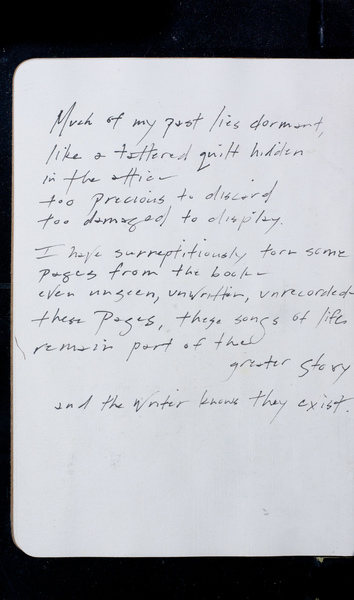 Much of my past lies dormant,
like a tattered quilt hidden
in the attic
too precious to discard
too damaged to display.
I have surreptitiously torn some
pages from the book
even unseen, unwritten, unrecorded
these pages, these songs of life
remain part of the
greater story
and the writer knows they exist.